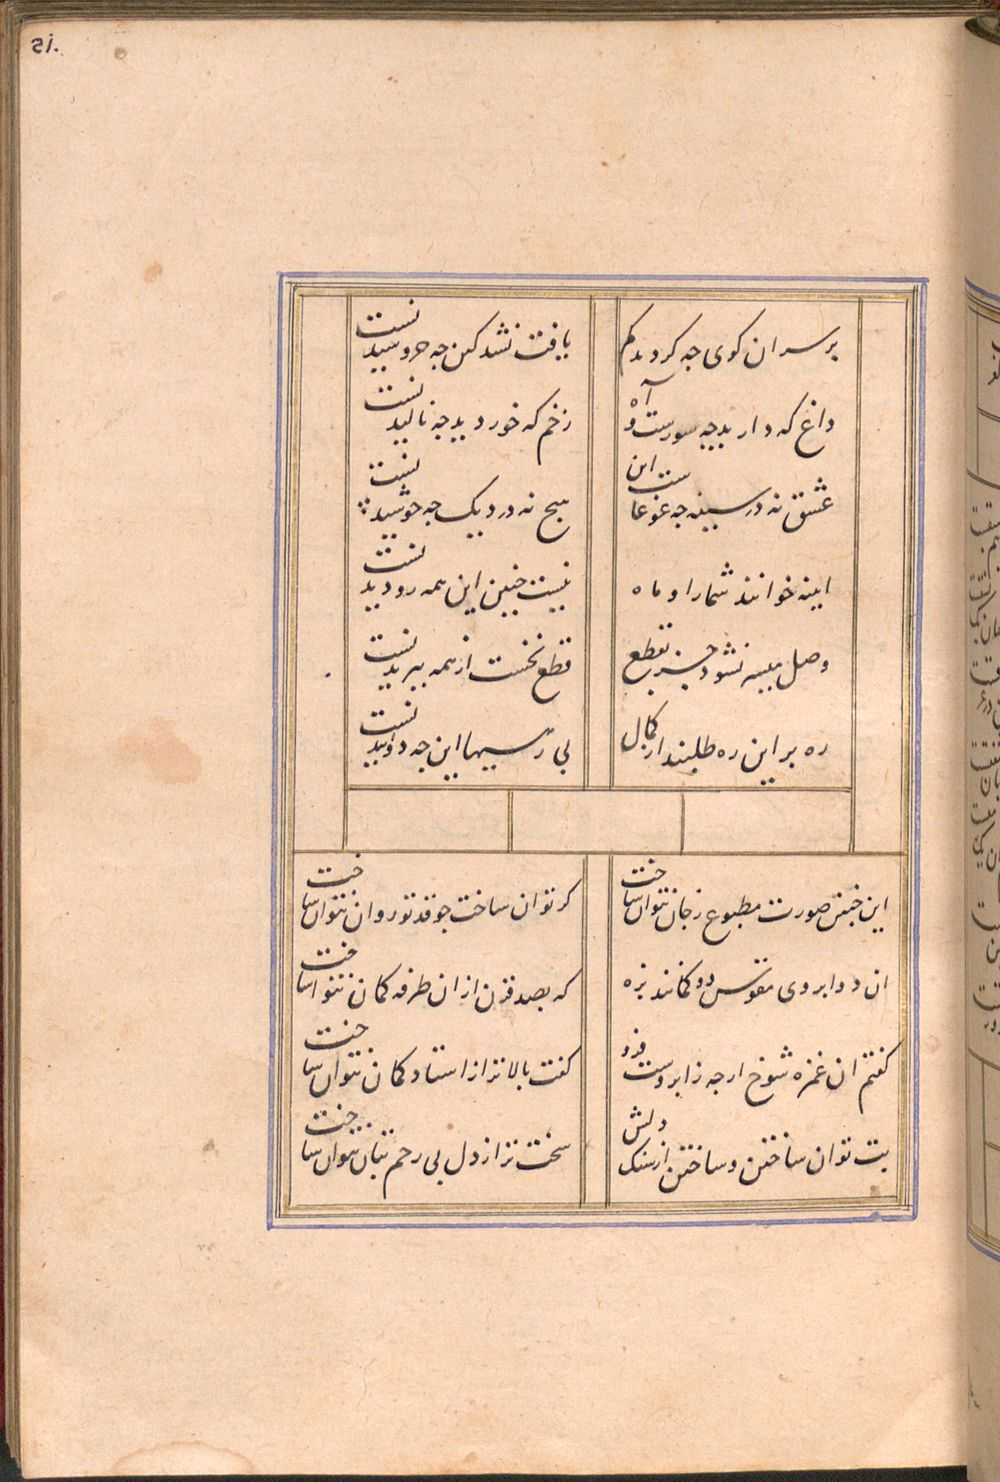 21.
بر سر ان کوی چه کردید کم
یافت نشد کین چه خروشیدنست
داغ که دارید چه سوزست و آه
زخم که خوردید چه نالیدنست
عشق نه در سینه چه غوغاست این
هیچ نه در دیک چه جوشیدنست
اینه خوانند شما را و ماه
نیست چنین این همه رو دیدنست
وصل میسر نشود جز بقطع
قطع نخست از همه ببریدنست
ره بر این ره طلبند از کمال
بی رسیها این چه دویدنست
این چنین صورت مطبوع ز جان نتوان ساخت
کر توان ساخت جو قد تو روان نتوان ساخت
ان دو ابروی مقوس دو کمانند بزه
که بصد قرن ازان طرفه کمان نتوان ساخت
کفتم ان غمزه شوخ ارچه ز ابروست فرو
کفت بالاتر از استاد کمان نتوان ساخت
بت توان ساختن و ساختن از سنک دلش
سخت تر از دل بی رحم بتان نتوان ساخت